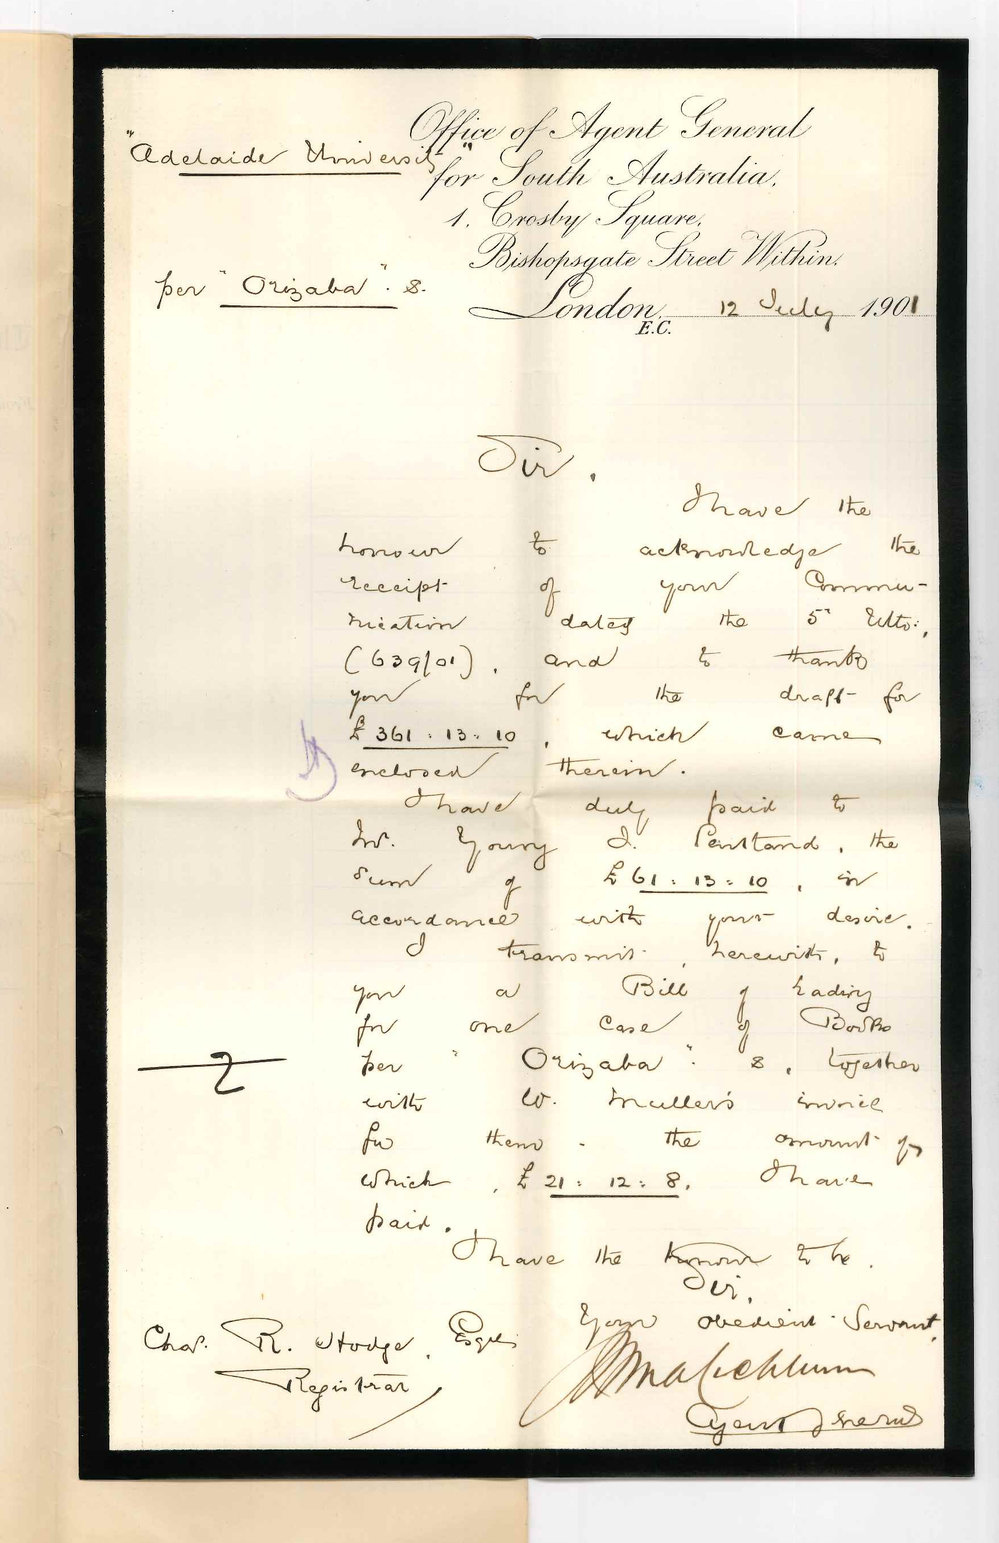 Office of Agent General
"Adelaide University"
for South Australia,
1, Crosby Square,
Bishopsgate Street Within,
per "Orizaba". s.
London, 12 July 1901
E.C.
Sir,
I have the
honour to acknowledge the
receipt of your Commu-
nication dated the 5th Ulto:,
(639/01), and to thank
you for the draft for
£361:13:10, which came
enclosed therein.
I have duly paid to
Mr. Young J. Pentland, the
sum of £61:13:10, in
accordance with your desire.
I transmit, herewith, to
you a Bill of Lading
for one case of Books
per "Orizaba". s, together
with W. Muller's invoice
for them - the amount of
which, £21:12:8, I have
paid.
I have the honour to be,
Sir,
Your obedient Servant,
Chas. R. Hodge, Esqre
Registrar
Agent General